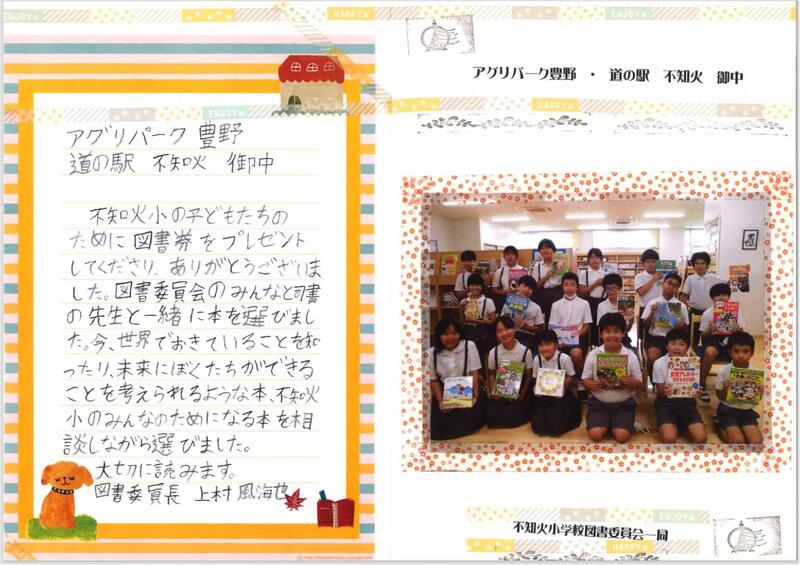 アグリパーク 豊野
道の駅 不知火 御中
不知火小の子どもたちの
ために図書券をプレゼント
してくださり、ありがとうございま
した。図書委員会のみんなと司書
の先生と一緒に本を選びまし
た。今、世界でおきていることを知
ったり、未来にぼくたちができる
ことを考えられるような本、不知火
小のみんなのためになる本を相
談しながら選びました。
大切に読みます。
図書委員長 上村 風海也
ENJOY
HAPPY
ENJOY
ENJOY
アグリパーク豊野 ・ 道の駅 不知火 御中
HAPPY
ENJOY
不知火小学校図書委員会一同
HAPPY